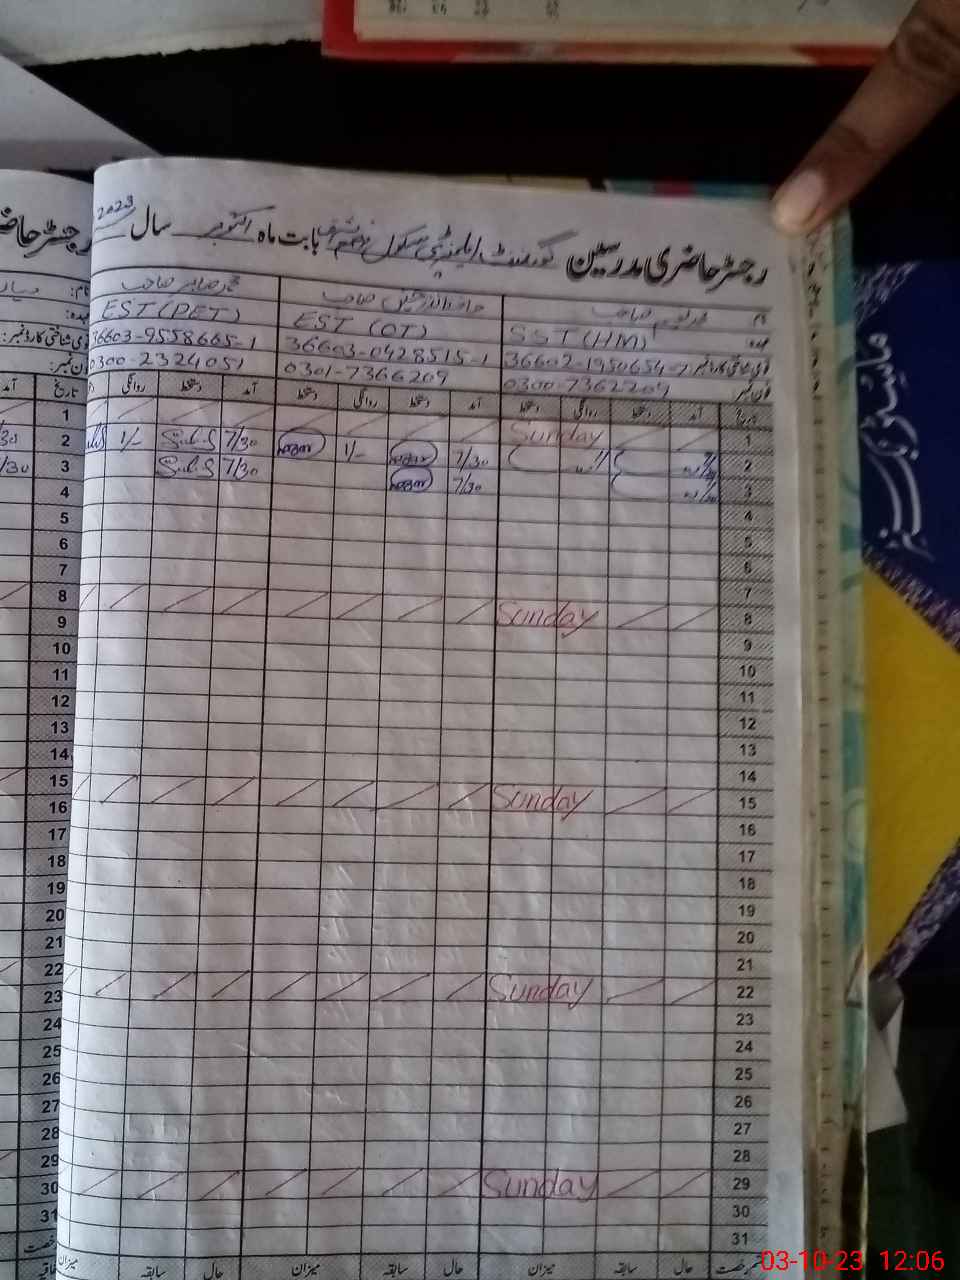 رجسٹر حاضری مدرسین گورنمنٹ ایلیمنٹری سکول بابت ماہ اکتوبر سال 2023
نام محمد صاحب
عہدہ SST (HM) EST (OT) EST (PET)
قومی شناختی کارڈ نمبر 36602-1950654-7 36603-0428515-1 36603-9558665-1
فون نمبر 0300-7362209 0301-7366209 0300-2324051
تاریخ آمد دستخط روانگی دستخط آمد دستخط روانگی دستخط آمد دستخط روانگی تاریخ آمد
1 Sunday 1
2 7/30 1/- 7/30 1/- 2
3 7/30 7/30 3
4 4
5 5
6 6
7 7
8 Sunday 8
9 9
10 10
11 11
12 12
13 13
14 14
15 Sunday 15
16 16
17 17
18 18
19 19
20 20
21 21
22 Sunday 22
23 23
24 24
25 25
26 26
27 27
28 28
29 Sunday 29
30 30
31 31
رخصت حال سابقہ میزان حال سابقہ میزان حال سابقہ میزان رخصت
03-10-23 12:06